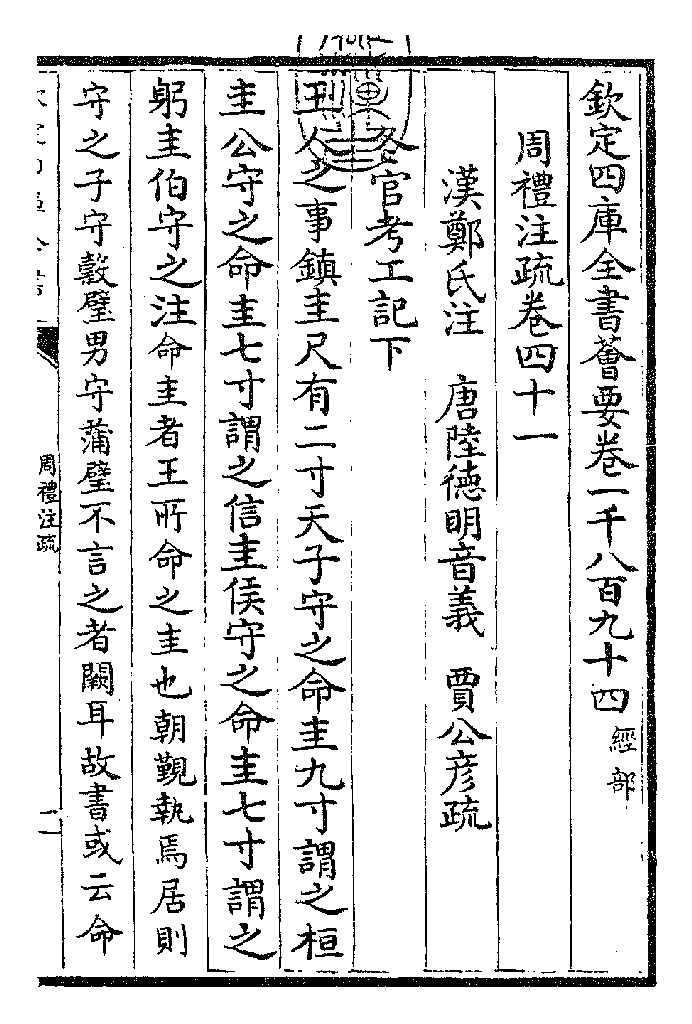 欽定四庫全書薈要卷一千八百九十四 經部
周禮注疏卷四十一
漢鄭氏注 唐陸德明音義 賈公彦疏
冬官考工記下
玉人之事鎮圭尺有二寸天子守之命圭九寸謂之桓
圭公守之命圭七寸謂之信圭侯守之命圭七寸謂之
躬圭伯守之注命圭者王所命之圭也朝覲執焉居則
守之子守穀璧男守蒲璧不言之者闕耳故書或云命
周禮注疏